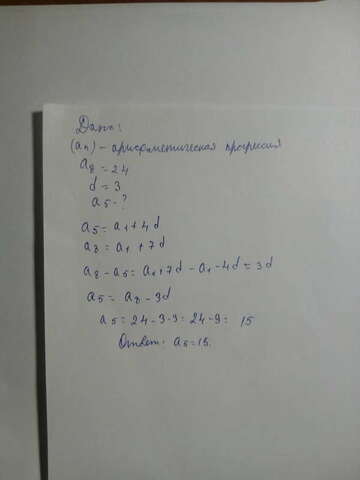 Дано:
(an) - арифметическая прогрессия
a8 = 24
d = 3
a5 - ?
a5 = a1 + 4d
a8 = a1 + 7d
a8 - a5 = a1 + 7d - a1 - 4d = 3d
a5 = a8 - 3d
a5 = 24 - 3·3 = 24 - 9 = 15
Ответ: a5 = 15.